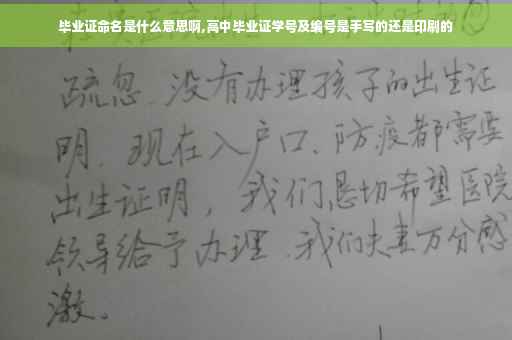 毕业证命名是什么意思啊,高中毕业证学号及编号是手写的还是印刷的
疏忽、没有办理孩子的出生证
明、现在入户口、防疫都需要
出生证明，我们恳切希望医院
领导给予办理、我们夫妻万分感
激。